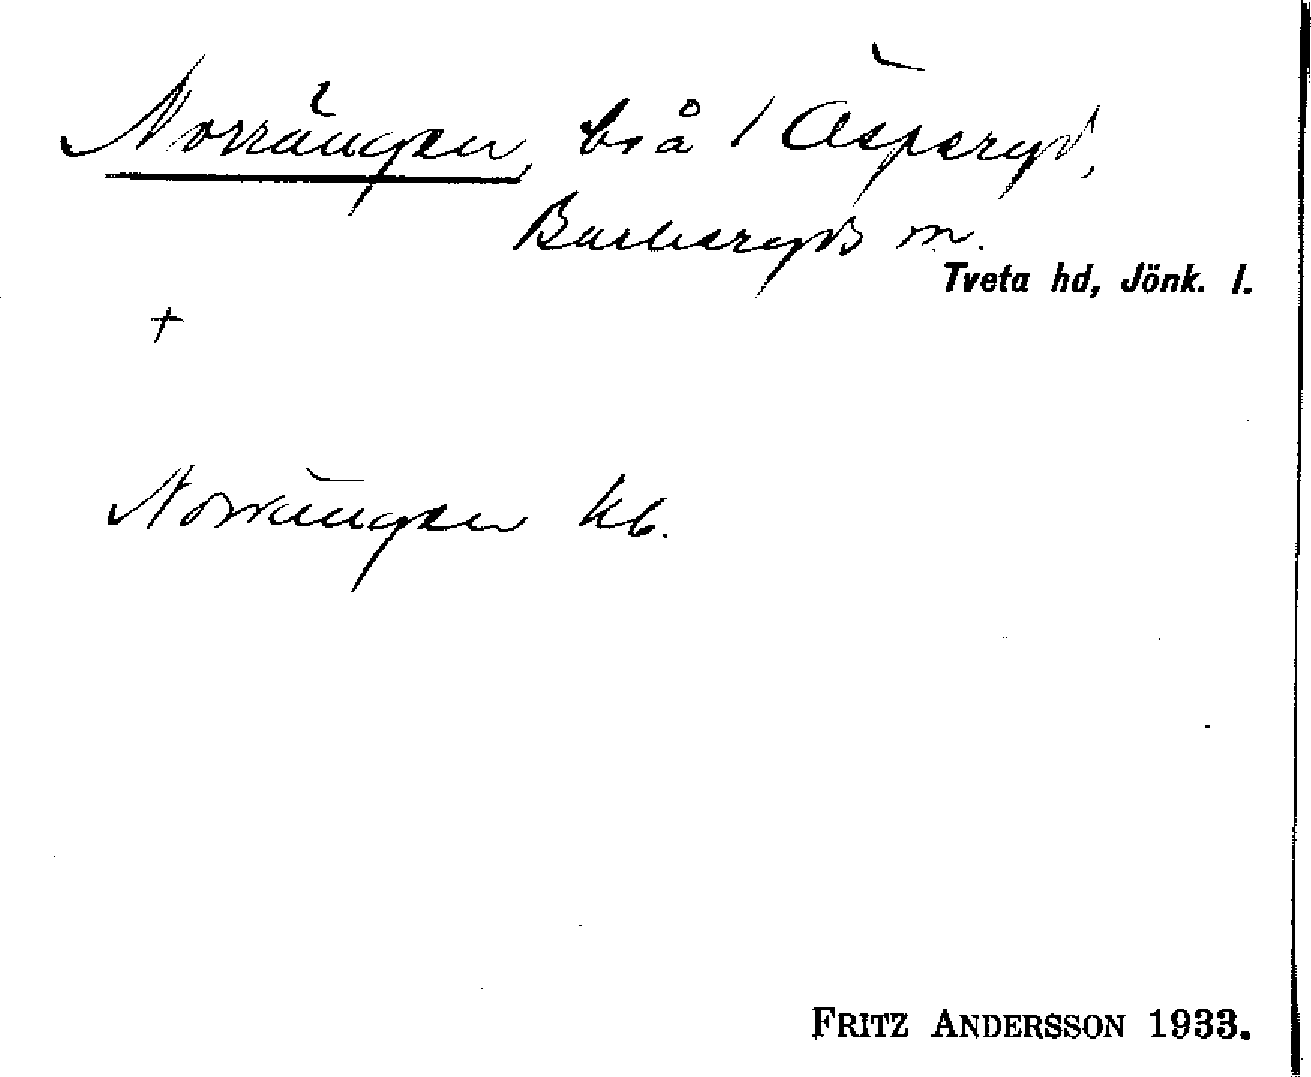 Norrängen, bs å / Äsperyd,
Barkeryds sn.
Tveta hd, Jönk. l.
+
Norrängen kb.
FRITZ ANDERSSON 1933.